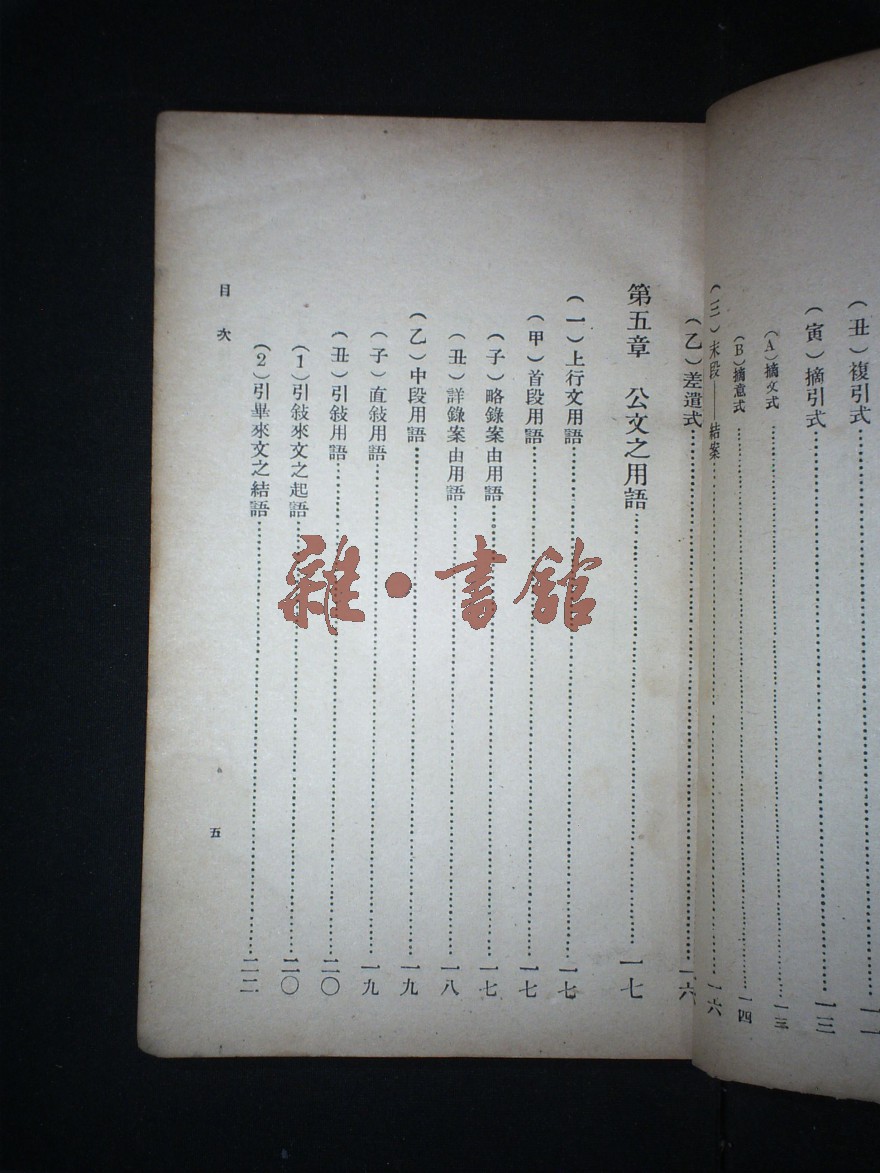 (丑)複引式……一二
(寅)摘引式……一三
(A)摘文式……一三
(B)摘意式……一四
(三)末段——結案……一六
(乙)差遣式……一六
第五章　公文之用語……一七
(一)上行文用語……一七
(甲)首段用語……一七
(子)略錄案由用語……一七
(丑)詳錄案由用語……一八
(乙)中段用語……一九
(子)直敍用語……一九
(丑)引敍用語……二〇
(1)引敍來文之起語……二〇
(2)引畢來文之結語……二二
目次
五
雜·書館